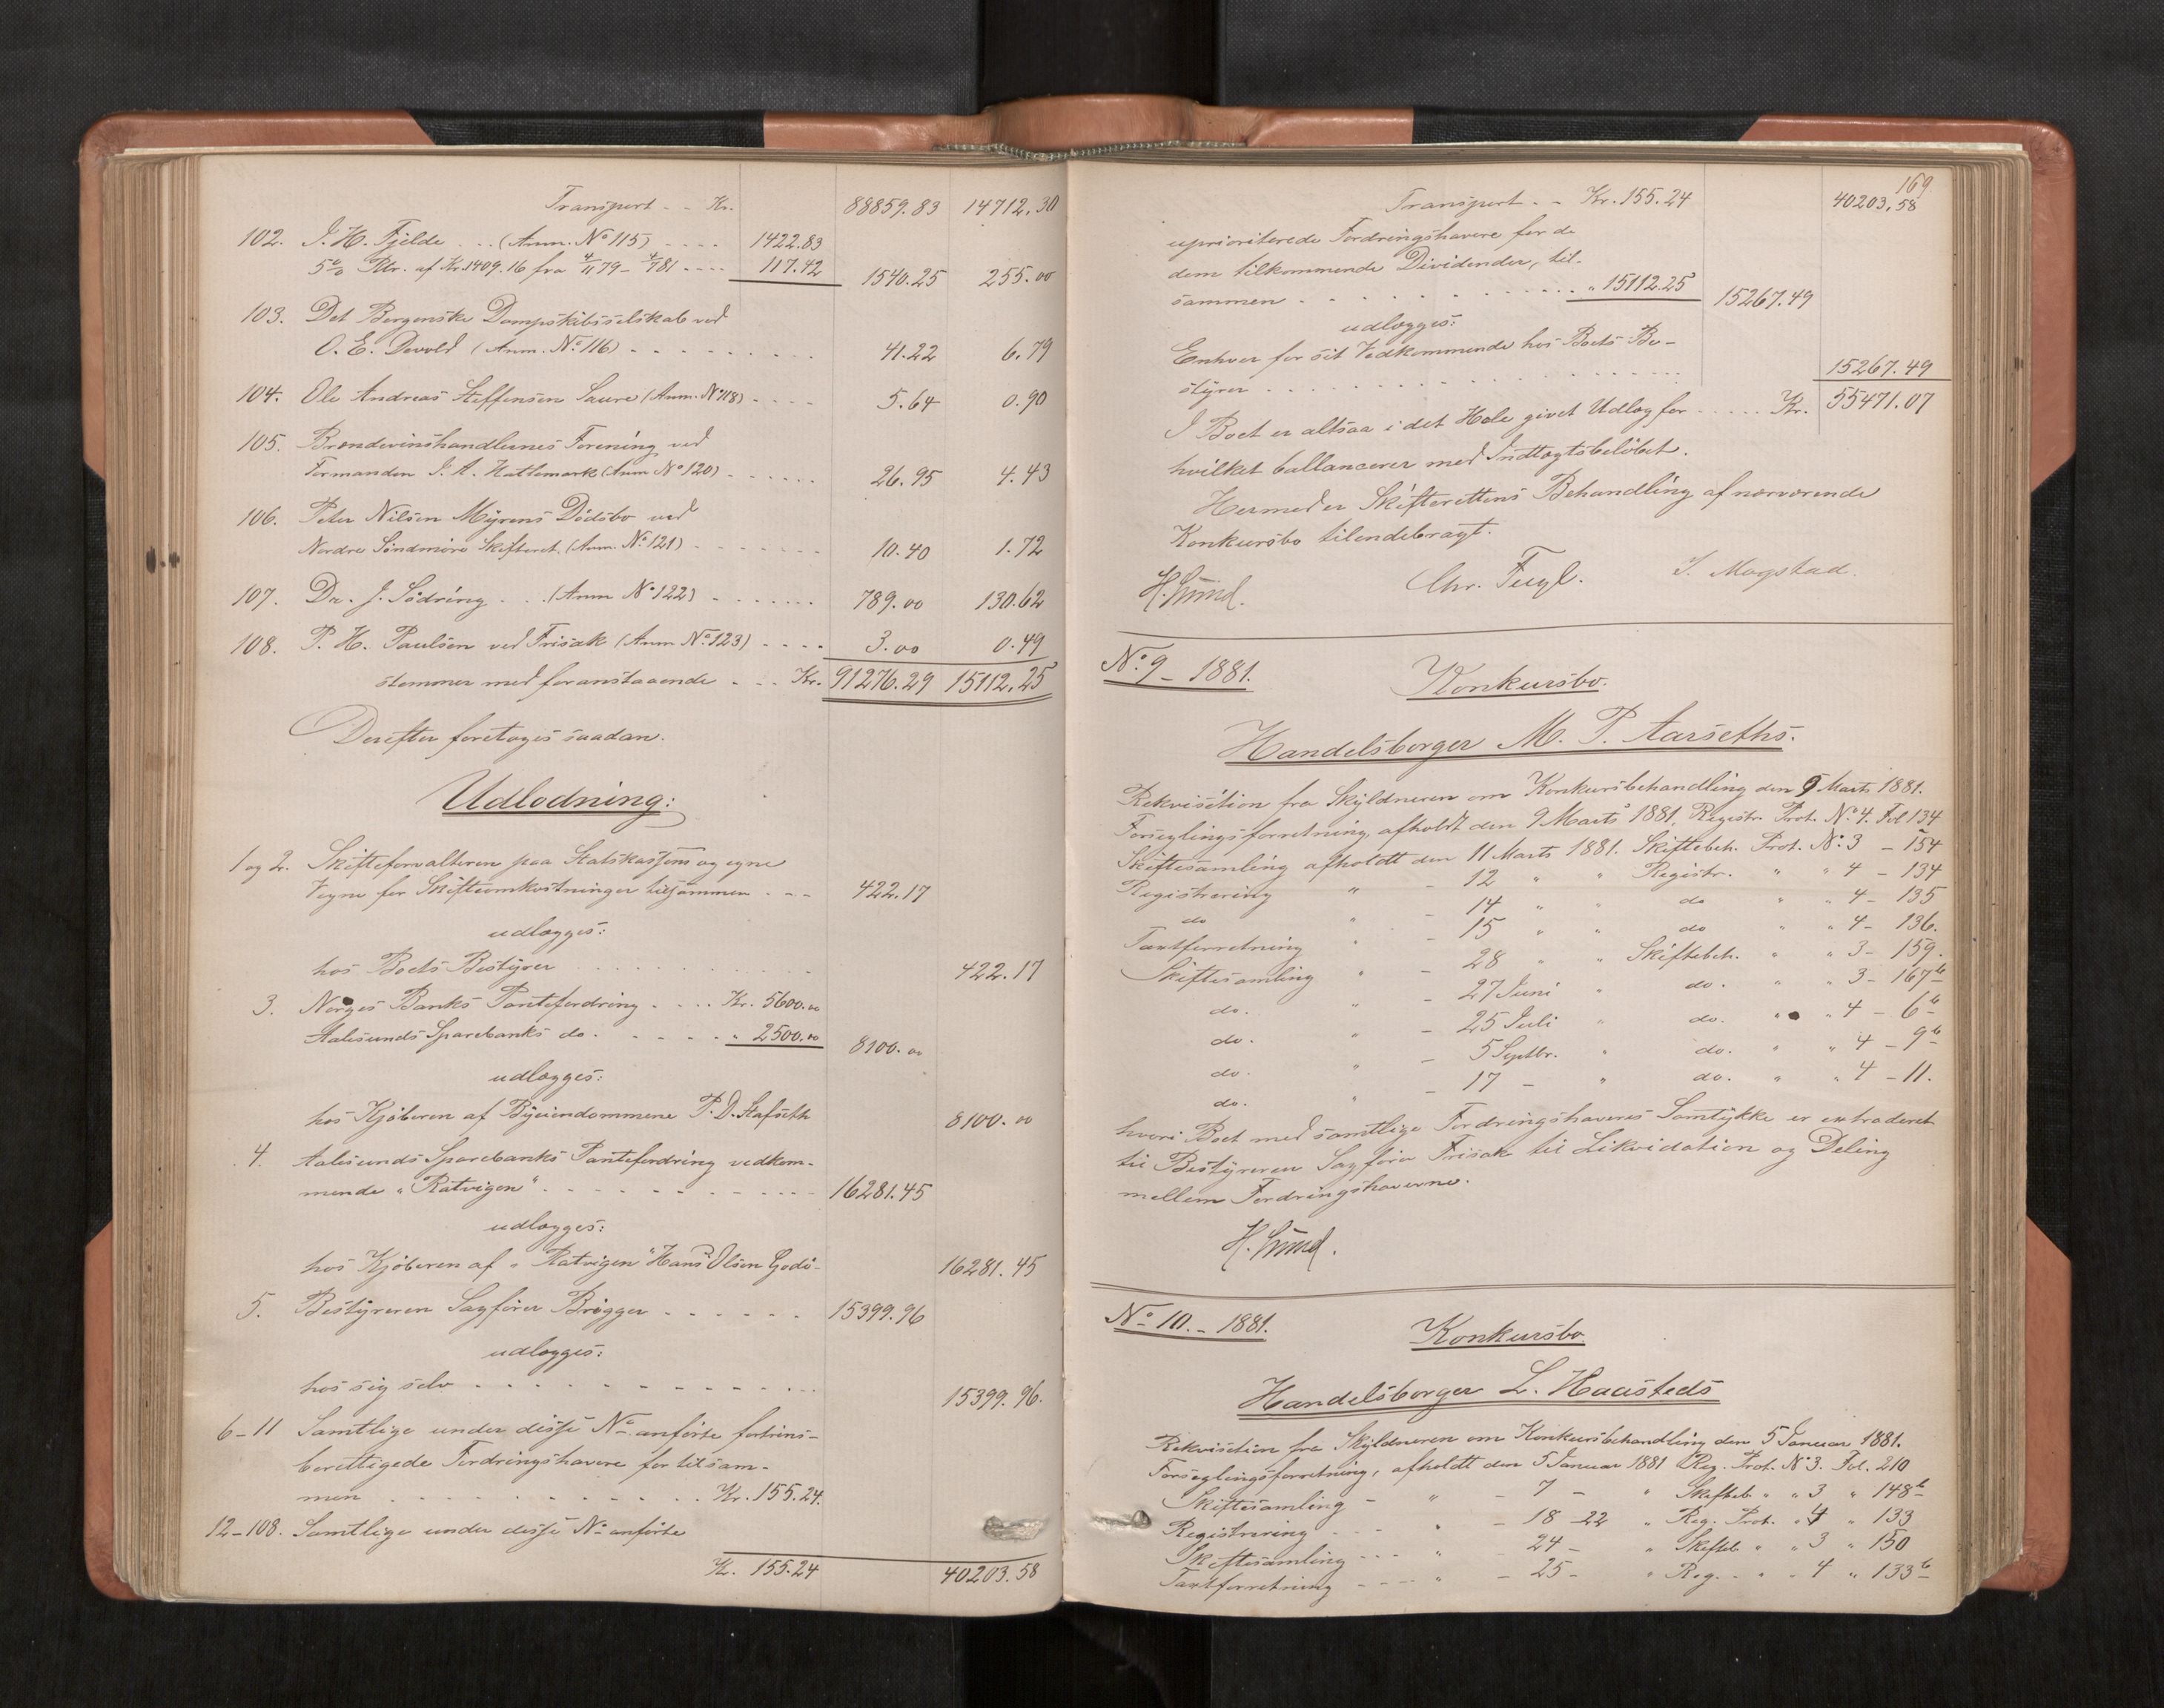 Transport - - Kr. 88859.83 14712.30
102. I. H. Fjelde . . (Anm. No 115) - - - - 1422.83
5% Rtr. af Kr. 1409.16 fra 4/11 79 - 4/7 81 - - - - 117.42 1540.25 255.00
103. Det Bergenske Dampskibsselskab ved
O. E. Devold (Anm. No 116) - - - - - - - - 41.22 6.79
104. Ole Andreas Steffensen Saure (Anm. No 118) - - - - 5.64 0.90
105. Brændevinshandlernes Forening ved
Formanden I. A. Hatlemark (Anm No 120) - - - - - - 26.95 4.43
106. Peter Nilsen Myrens Dödsbo ved
Nordre Söndmöre Skifteret (Anm. No 121) - - - - - - - 10.40 1.72
107. Dr. J. Södring . . . (Anm No 122) - - - - - - - 789.00 130.62
108. P. H. Paulsen ved Frisak (Anm No 123) - - - - 3.00 0.49
stemmer med foranstaaende - - - Kr. 91276.29 15112.25
Derefter foretoges saadan.
Udlodning:
1 og 2. Skifteforvalteren paa Statskassens og egne
Vegne for Skifteomkostninger tilsammen - - - 422.17
udlægges:
hos Boets Bestyrer . . . . . . . . . 422.17
3. Norges Banks Pantefordring - . . . Kr. 5600.00
Aalesunds Sparebanks do. - - - - - " 2500.00 8100.00
udlægges:
hos Kjöberen af Byeiendommene P. D. Stafseth 8100.00
4. Aalesunds Sparebanks Pantefordring vedkom-
mende "Ratvigen" . - - - - - - - - - 16281.45
udlægges:
hos Kjöberen af "Ratvigen" Hans Olsen Godö - 16281.45
5. Bestyreren Sagförer Brögger - - - - - - - 15399.96
udlægges:
hos sig selv - - - - - - - - - - - 15399.96.
6-11 Samtlige under disse No anförte fortrins-
berettigede Fordringshavere for tilsam-
men . . . . . . . . . . . Kr. 155.24.
12-108. Samtlige under disse No anförte
Kr. 155.24 40203.58
169.
Transport - - Kr. 155.24 40203.58
uprioriterede Fordringshavere for de
dem tilkommende Dividender, til-
sammen - - - - - - - - - - - " 15112.25 15267.49
udlægges:
Enhver for sit Vedkommende hos Boets Be-
styrer . . . . . . . . . . . . . . . 15267.49
I Boet er altsaa i det Hele givet Udlæg for - - - - - Kr. 55471.07
hvilket ballancerer med Indtægtsbelöbet.
Hermed er Skifterettens Behandling af nærværende
Konkursbo tilendebragt.
Chr. Fugl. I. Mogstad.
No 9 - 1881.
Konkursbo.
Handelsborger M. P. Aarseths.
Rekvisition fra Skyldneren om Konkursbehandling den 9 Marts 1881.
Forseglingsforretning, afholdt den 9 Marts 1881, Registr. Prot. No 4. Fol 134
Skiftesamling afholdt den 11 Marts 1881. Skiftebeh. Prot. No 3 - 154
Registrering " - 12 " " Registr. " " 4 - 134
do " - 14 " " do " " 4 - 135
Taxtforretning " - 15 " " do " " 4 - 136.
Skiftesamling " - 28 " " Skiftebeh. " " 3 - 159.
do. " - 27 Juni " do. " " 3 - 167b
do. " - 25 Juli " do. " " 4 - 6b
do. " - 5 Septbr. " do. " " 4 - 9b
do. " - 17 - " do. " " 4 - 11.
hvori Boet med samtlige Fordringshaveres Samtykke er extraderet
til Bestyreren Sagförer Frisak til Likvidation og Deling
mellem Fordringshaverne.
No 10. - 1881.
Konkursbo
Handelsborger L. Haasteds
Rekvisition fra Skyldneren om Konkursbehandling den 5 Januar 1881.
Forseglingsforretning, afholdt den 5 Januar 1881 Reg. Prot. No 3. Fol. 210
Skiftesamling - " - 7 - " Skifteb " " 3 " 148b
Registrering - - - " - 18 - 22 " Reg. Prot. " 4 " 133
Skiftesamling - - - " - 24 - " Skifteb " " 3 " 150
Taxtforretning - - - - " - 25 - " Reg. - " " 4 " 133b